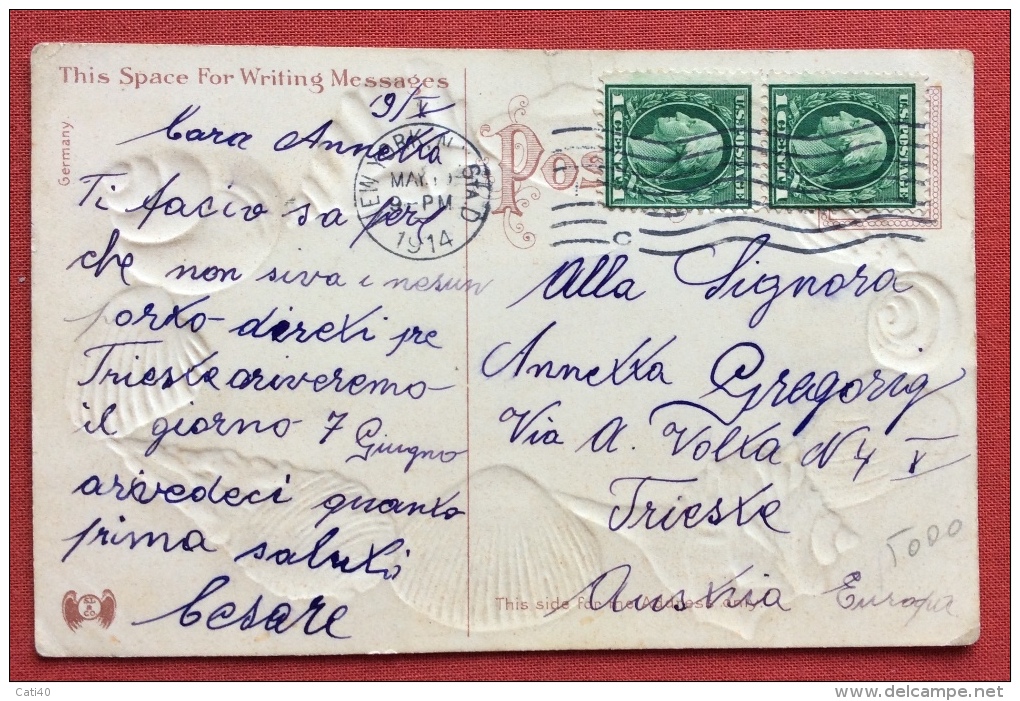 This Space For Writing Messages
Germany
19/V
Cara Annetta
Ti facio sa per
che non siva i nesun
porto diretti pre
Trieste ariveremo
il giorno 7 Giugno
arivedeci quanto
prima saluti
Cesare
NEW YORK, N.Y.
STA D
MAY
9-PM
1914
Pos
U.S. POSTAGE
1 CENT 1
U.S. POSTAGE
1 CENT 1
C
Alla Signora
Annetta Gregorig
Via A. Volta N 4 V
Trieste
Austria Europa
TODO
This side for the Address only
Cati40
http://www.delcampe.net